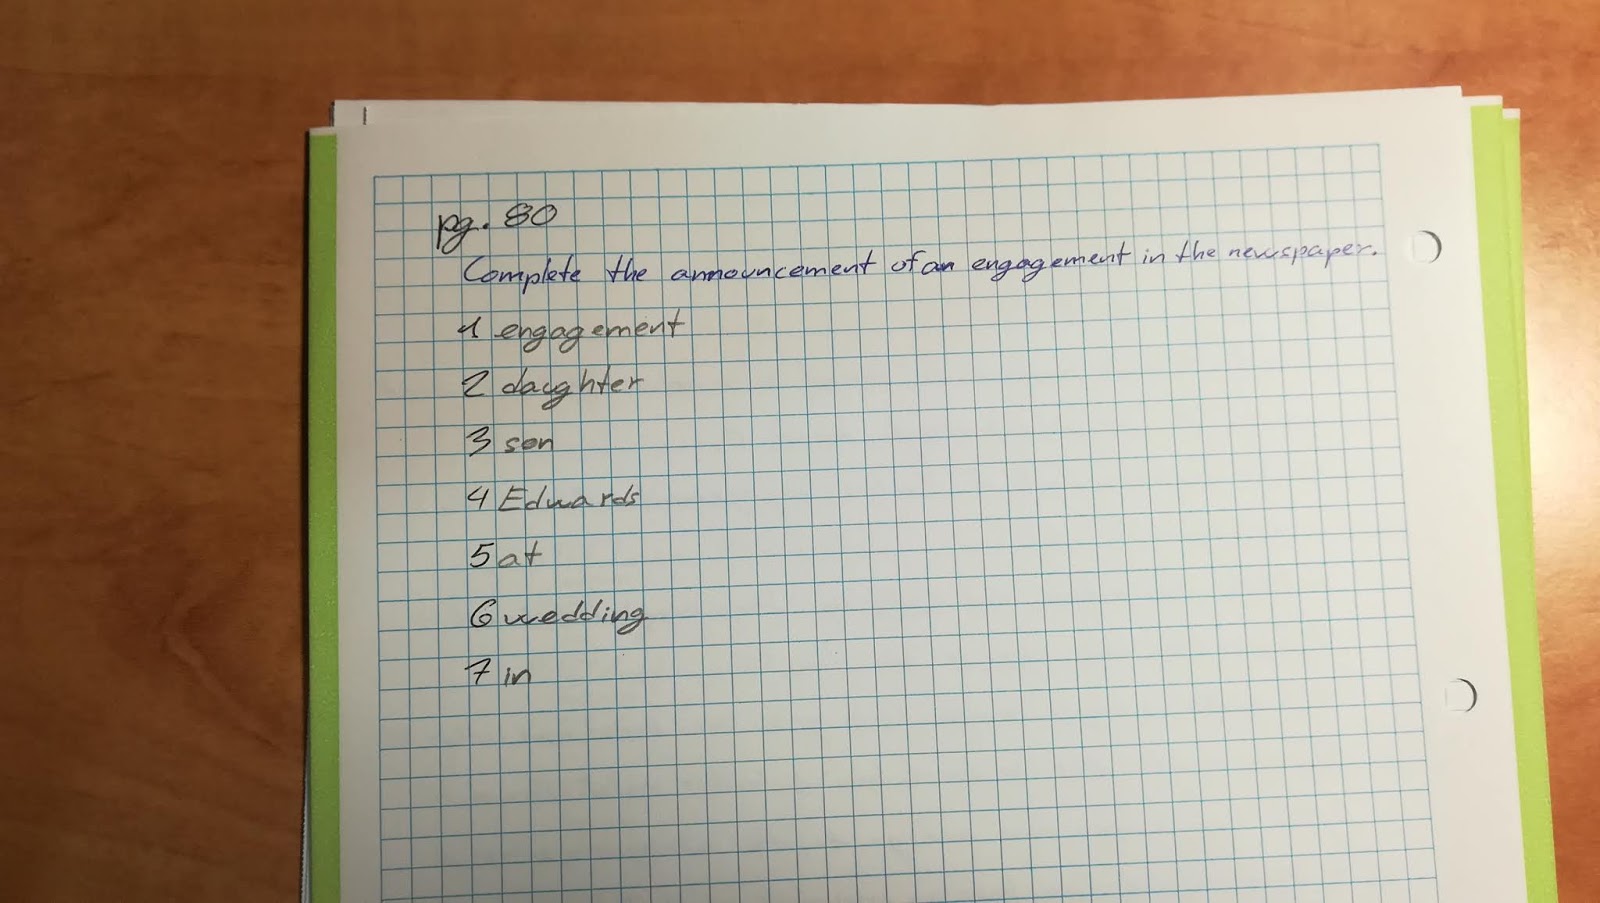 pg. 80
Complete the announcement of an engagement in the newspaper.
1 engagement
2 daughter
3 son
4 Edwards
5 at
6 wedding
7 in